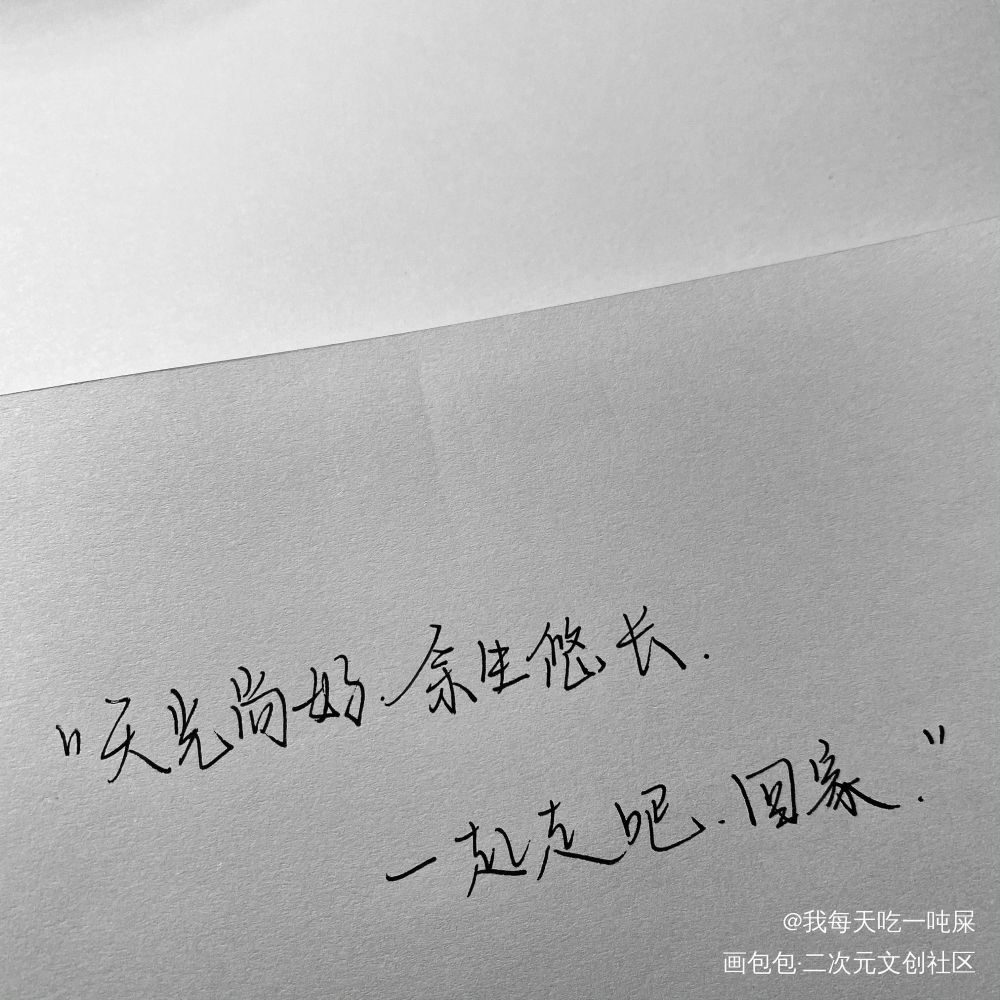 "天光尚好.余生悠长.
一起走吧.回家."
@我每天吃一吨屎
画包包·二次元文创社区